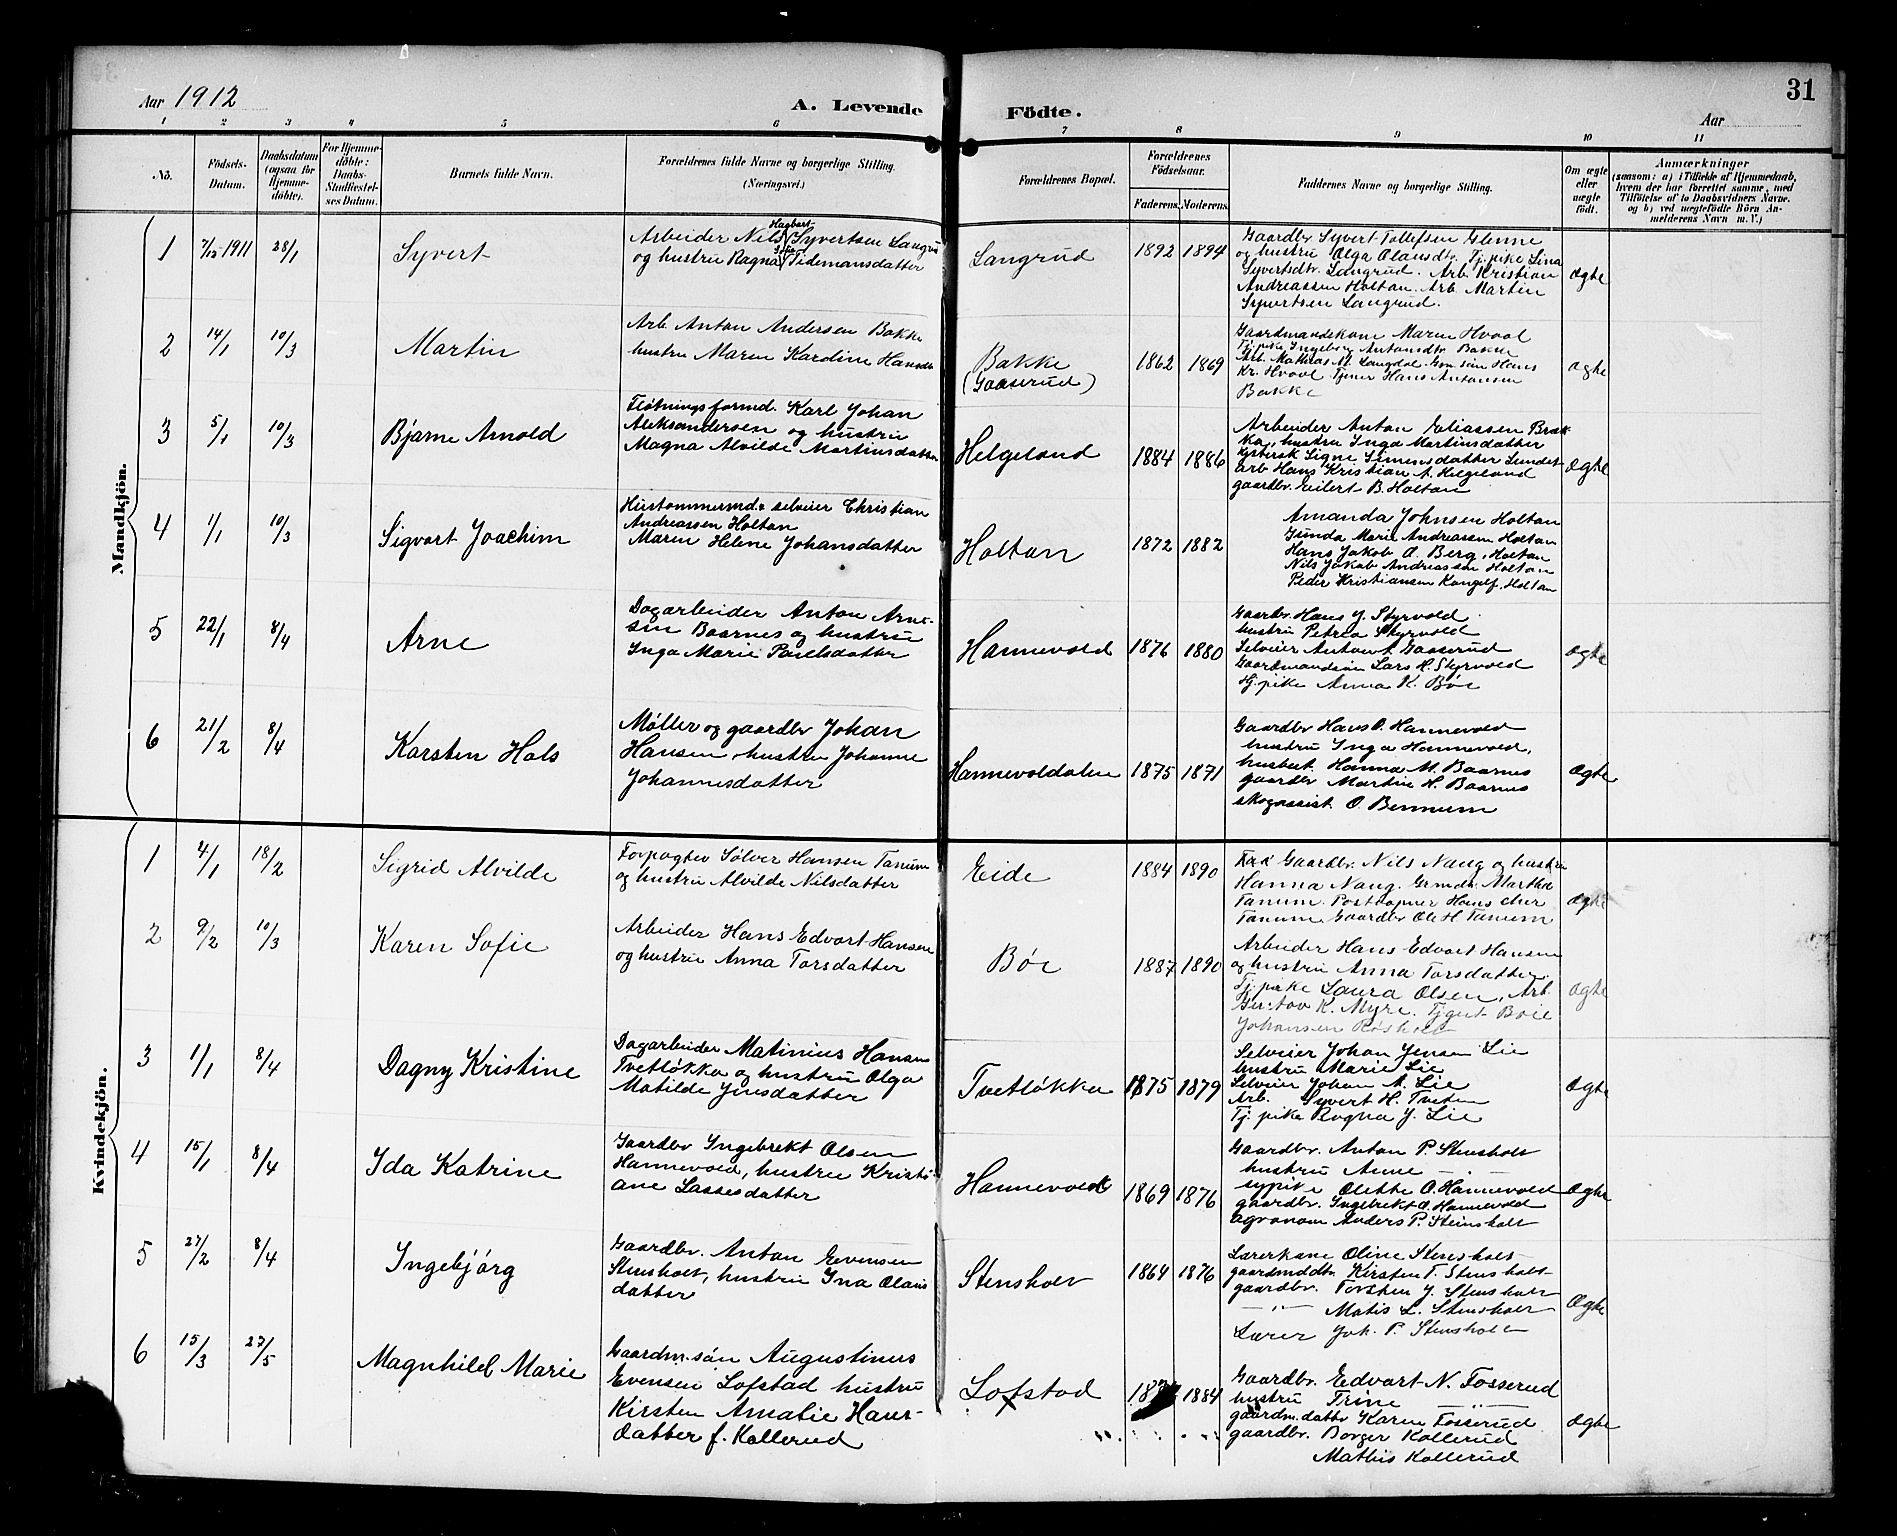 31
Aar 1912
A. Levende
Födte.
Aar
1 2 3 4 5 6 7 8 9 10 11
No.
Födsels-
Datum.
Daabsdatum
(ogsaa for
Hjemme-
döbte).
For Hjemme-
döbte:
Daabs-
Stadfæstel-
ses Datum.
Barnets fulde Navn.
Forældrenes fulde Navne og borgerlige Stilling.
(Næringsvei.)
Forældrenes Bopæl.
Forældrenes
Födselsaar.
Faderens. Moderens.
Faddernes Navne og borgerlige Stilling.
Om ægte
eller
uægte
födt.
Anmærkninger
(saasom: a) i Tilfælde af Hjemmedaab,
hvem der har forrettet samme, med
Tilföielse af to Daabsvidners Navne.
og b) ved uægtefödte Börn An-
melderens Navn m. V.)
Mandkjön.
1 7/12 1911 28/1
Syvert
Hagbart
Arbeider Nils Syvertsen Langrud
Sofie
og hustru Ragna Tidemansdatter
Langrud
1892 1894
Gaardbr Syvert Tollefsen Glenne
og hustru Olga Olausdtr. Tj. pike Lina
Syvertsdtr. Langrud. Arb. Kristian
Andreassen Holtan. Arb. Martin
Syvertsen Langrud.
Ægte
2 14/1 10/3
Martin
Arb. Anton Andersen Bakke
hustru Maren Karoline Hansdtr
Bakke
(Gaaserud)
1862 1869
Gaardmandskone Maren Hvaal
Tj. pike Ingeborg Antonsdtr. Bakke
Arb. Mathias M. Langdal. Grm. søn Hans
Kr. Hvaal. Tjener Hans Antonsen
Bakke
Ægte
3 5/1 10/3
Bjarne Arnold
Fløtningsformd. Karl Johan
Aleksandersen og hustru
Magna Alvilde Martinsdatter
Helgeland
1884 1886
Arbeider Anton Eliassen Bræk-
ka, hustru Inga Martinsdatter
Sysersk Signe Simensdatter Sundet
arb Hans Kristian A. Helgeland
gaardbr. Eilert B. Holtan
Ægte
4 1/1 10/3
Sigvart Joachim
Hustømmermd. & selveier Christian
Andreassen Holtan
Maren Helene Johansdatter
Holtan
1872 1882
Amanda Johnsen Holtan
Gunda Marie Andreassen Holtan
Hans Jakob A. Berg, Holtan
Nils Jakob Andreassen Holtan
Peder Kristiansen Holtan
5 22/1 8/4
Arne
Dagarbeider Anton Arne-
sen Baarnes og hustru
Inga Marie Paulsdatter
Hannevold
1876 1880
Gaardbr. Hans J. Styrvold
hustru Petrea Styrvold
Selveier Anton A. Gaaserud
Gaardmandssøn Lars H. Styrvold
Tj. pike Anna K. Bøe
Ægte
6 21/2 8/4
Karsten Hals
Møller og gaardbr Johan
Hansen, hustru Johanne
Johannesdatter
Hannevoldalen
1875 1871
Gaardbr Hans O. Hannevold
hustru Inga Hannevold,
husbest. Hanna M. Baarnes
gaardbr Martin H. Baarnes
skogassist. O. Bennum
Ægte
Kvindekjön.
1 4/1 18/2
Sigrid Alvilde
Forpagter Sølver Hansen Tanum
og hustru Alvilde Nilsdatter
Eide
1884 1890
Gaardbr. Nils Naug og hustru
Hanna Naug. Grmdtr. Martha
Tanum. Postaapner Hans
Tanum Gaardbr Ole H. Tanum
Ægte
2 9/2 10/3
Karen Sofie
Arbeider Hans Edvart Hansen
og hustru Anna Torsdatter
Bøe
1887 1890
Arbeider Hans Edvart Hansen
og hustru Anna Torsdatter.
Tj. pike Laura Olsen, Arb.
Gustav K. Myre. Tjgut Boie
Johansen Røsholt
Ægte
3 1/1 8/4
Dagny Kristine
Dagarbeider Matinius Hansen
Tvetløkka og hustru Olga
Matilde Jensdatter
Tvetløkka
1875 1879
Selveier Johan Jensen Lie
hustru Marie Lie
Selveier Johan A. Lie
Arb. Syvert H. Tveten
Tj. pike Ragna J. Lie
Ægte
4 15/1 8/4
Ida Katrine
Gaardbr Ingebrekt Olsen
Hannevold, hustru Kristi-
ane Lassesdatter
Hannevold
1869 1876
Gaardbr. Anton P. Stensholt
hustru Anne — . —
sypike Olette O. Hannevold
gaardbr. Ingebrekt O. Hannevold
agronom Anders P. Steinsholt
Ægte
5 27/2 8/4
Ingebjørg
Gaardbr. Anton Evensen
Stensholt, hustru Ina Olaus
datter
Stensholt
1864 1876
Lærerkone Oline Stensholt
gaardmddtr. Kirsten T. Stensholt
gaardbr. Torsten J. Stensholt
— " — Matis L. Stensholt
Lærer Joh. P. Stensholt
Ægte
6 15/3 27/5
Magnhild Marie
Gaardm.søn Augustinus
Evensen Lofstad hustru
Kirsten Amalie Hans-
datter f. Kollerud
Lofstad
1884
Gaardbr. Edvart N. Fosserud
hustru Trine — " —
gaardm.datter Karen Fosserud
gaardbr. Borger Kollerud
Mathis Kollerud
Ægte